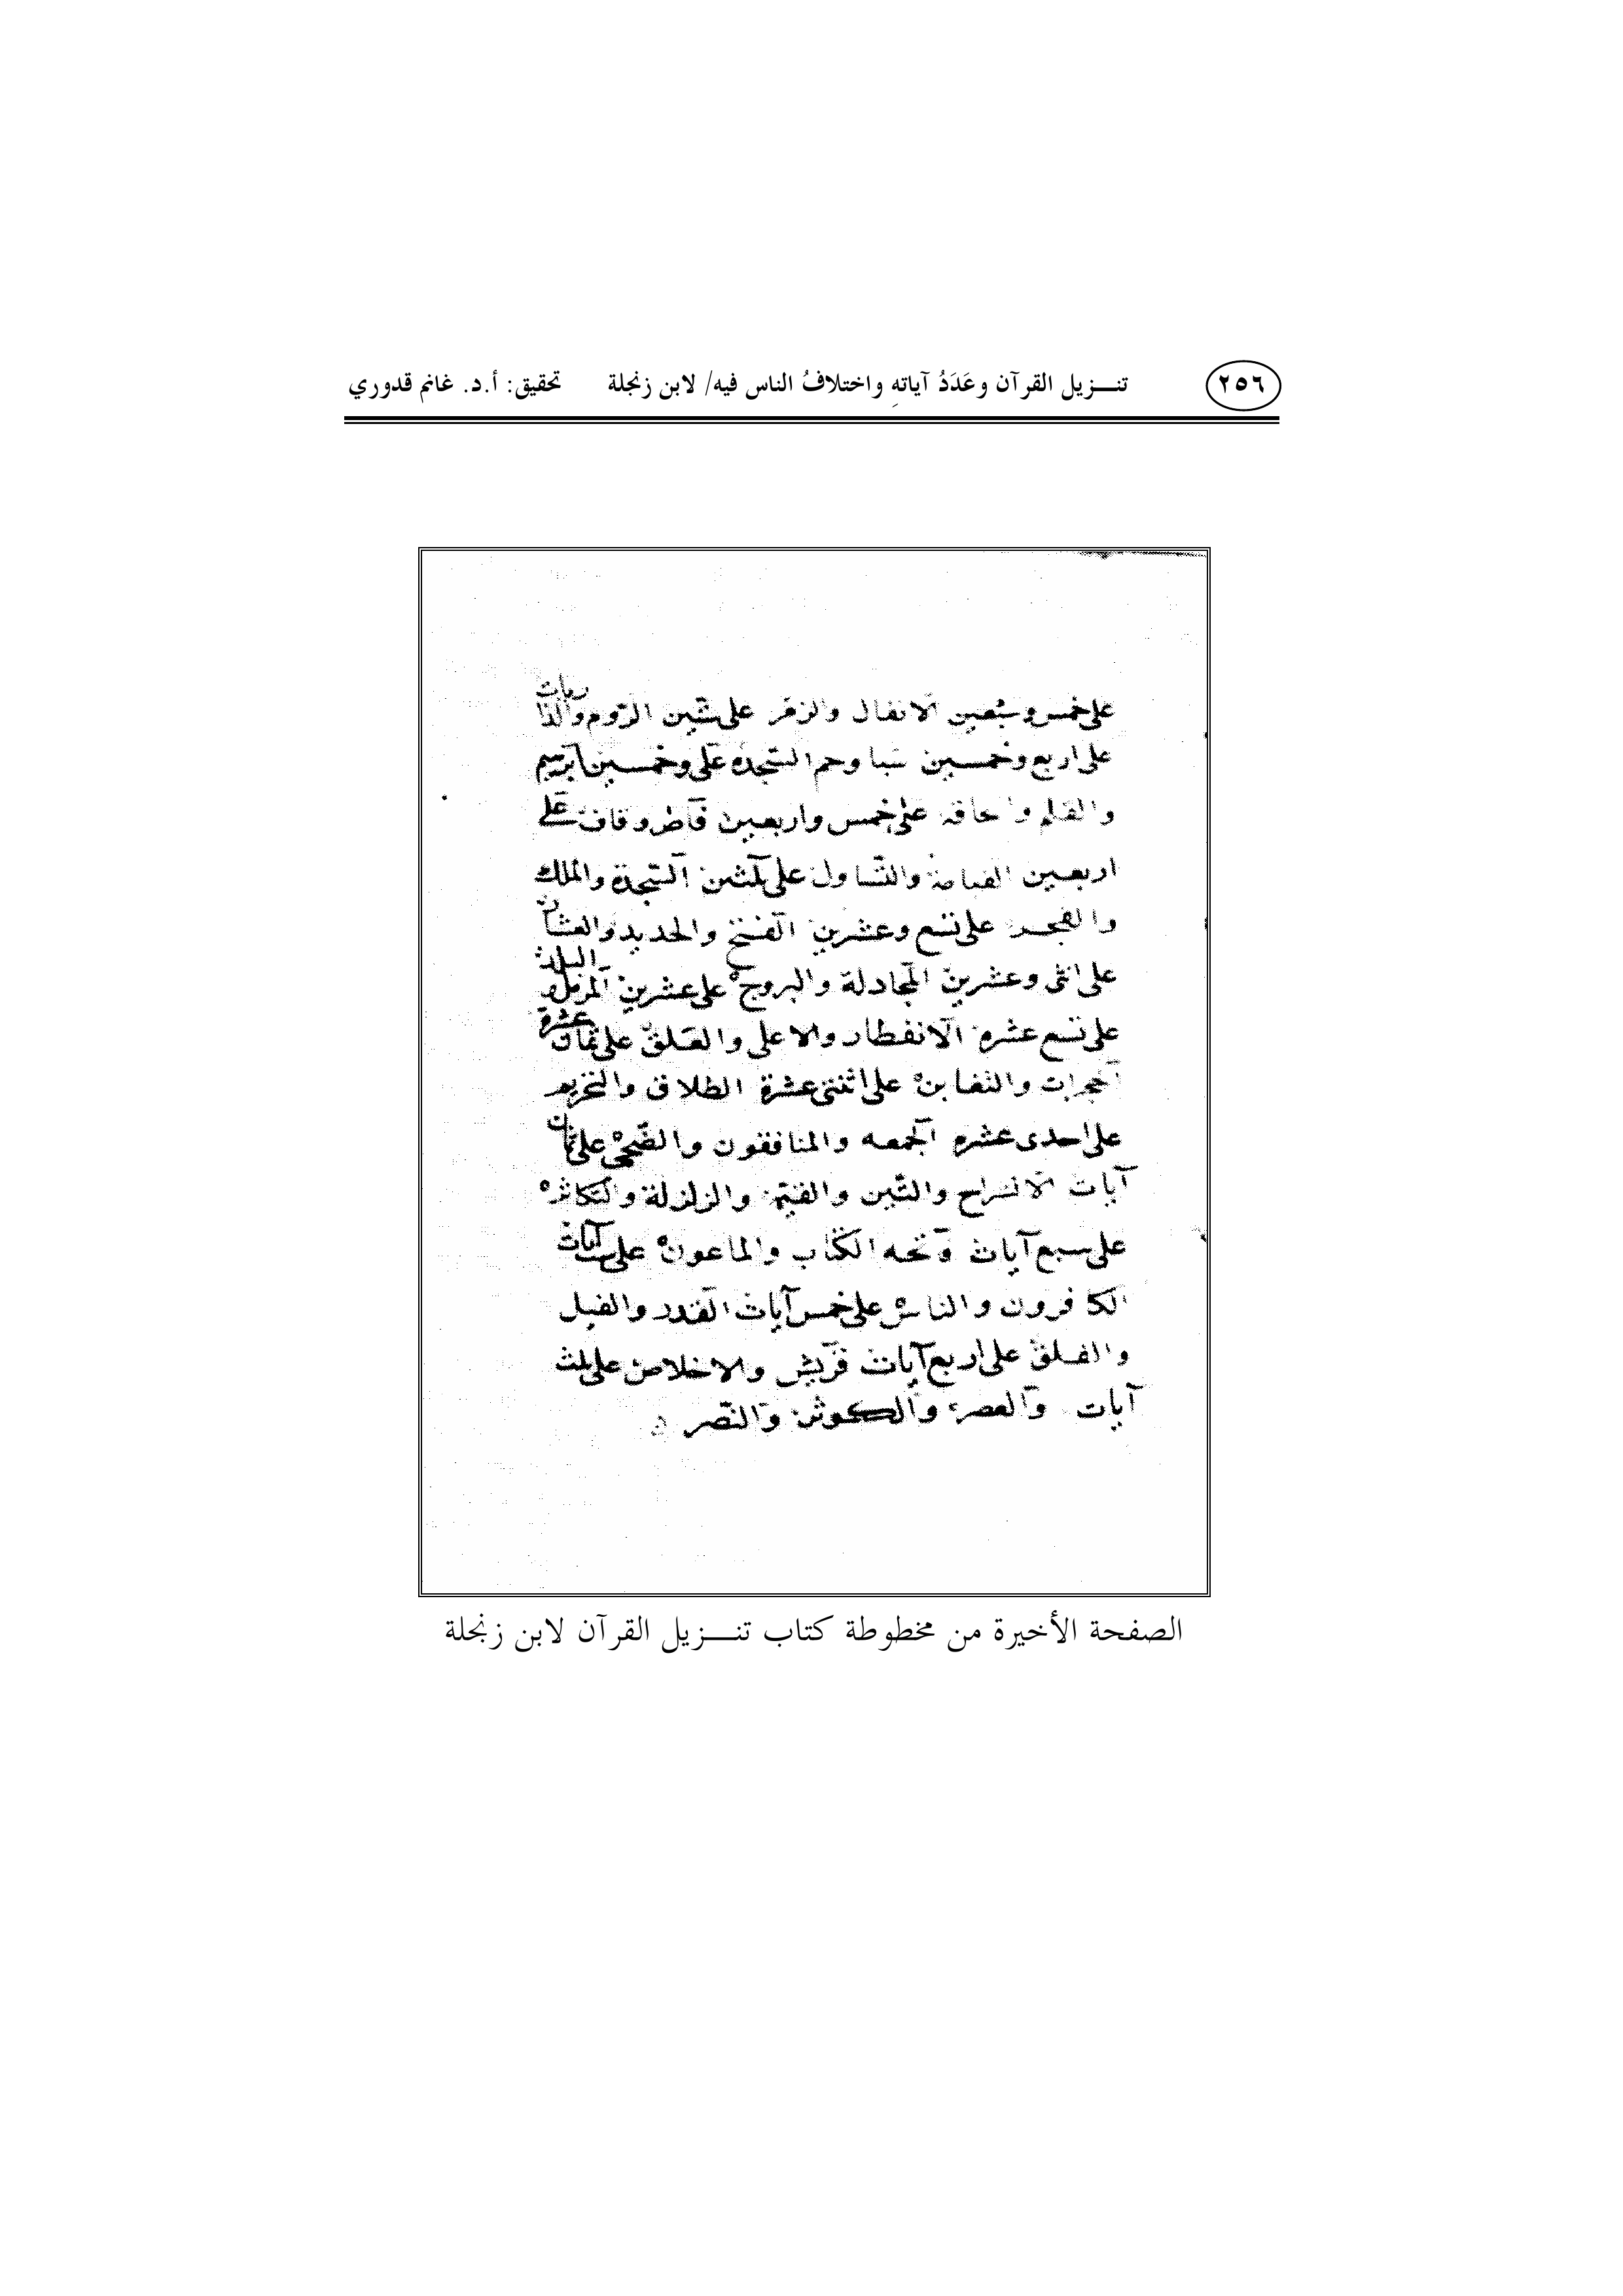 ٢٥٦ تنـــزيل القرآن وعَدَدُ آياتهِ واختلافُ الناس فيه/ لابن زنجلة تحقيق: أ.د. غانم قدوري
على خمس وسبعين الانفال والزمر على ستين الروم والذاريات
على اربع وخمسين سبا وحم السجدة على وخمسين ابرهيم
والقلم والحاقه على خمس واربعين فاطر وقاف على
اربعين القيامة والتساول على ثلثين السجدة والملك
والفجر على تسع وعشرين الفتح والحديد والغشان
على اثنى وعشرين المجادلة والبروج على عشرين المزمل والبلد
على تسع عشره الانفطار والاعلى والعلق على ثمان عشرة
الحجرات والتغابن على اثنتى عشرة الطلاق والتحريم
على احدى عشره الجمعه والمنافقون والضحى على ثمان
آيات الانشراح والتين والقيمة والزلزلة والتكاثر
على سبع آيات فاتحه الكتاب والماعون على ست آيات
الكافرون والناس على خمس آيات القدر والفيل
والفلق على اربع آيات قريش والاخلاص على ثلث
آيات والعصر والكوثر والنصر
الصفحة الأخيرة من مخطوطة كتاب تنـــزيل القرآن لابن زنجلة